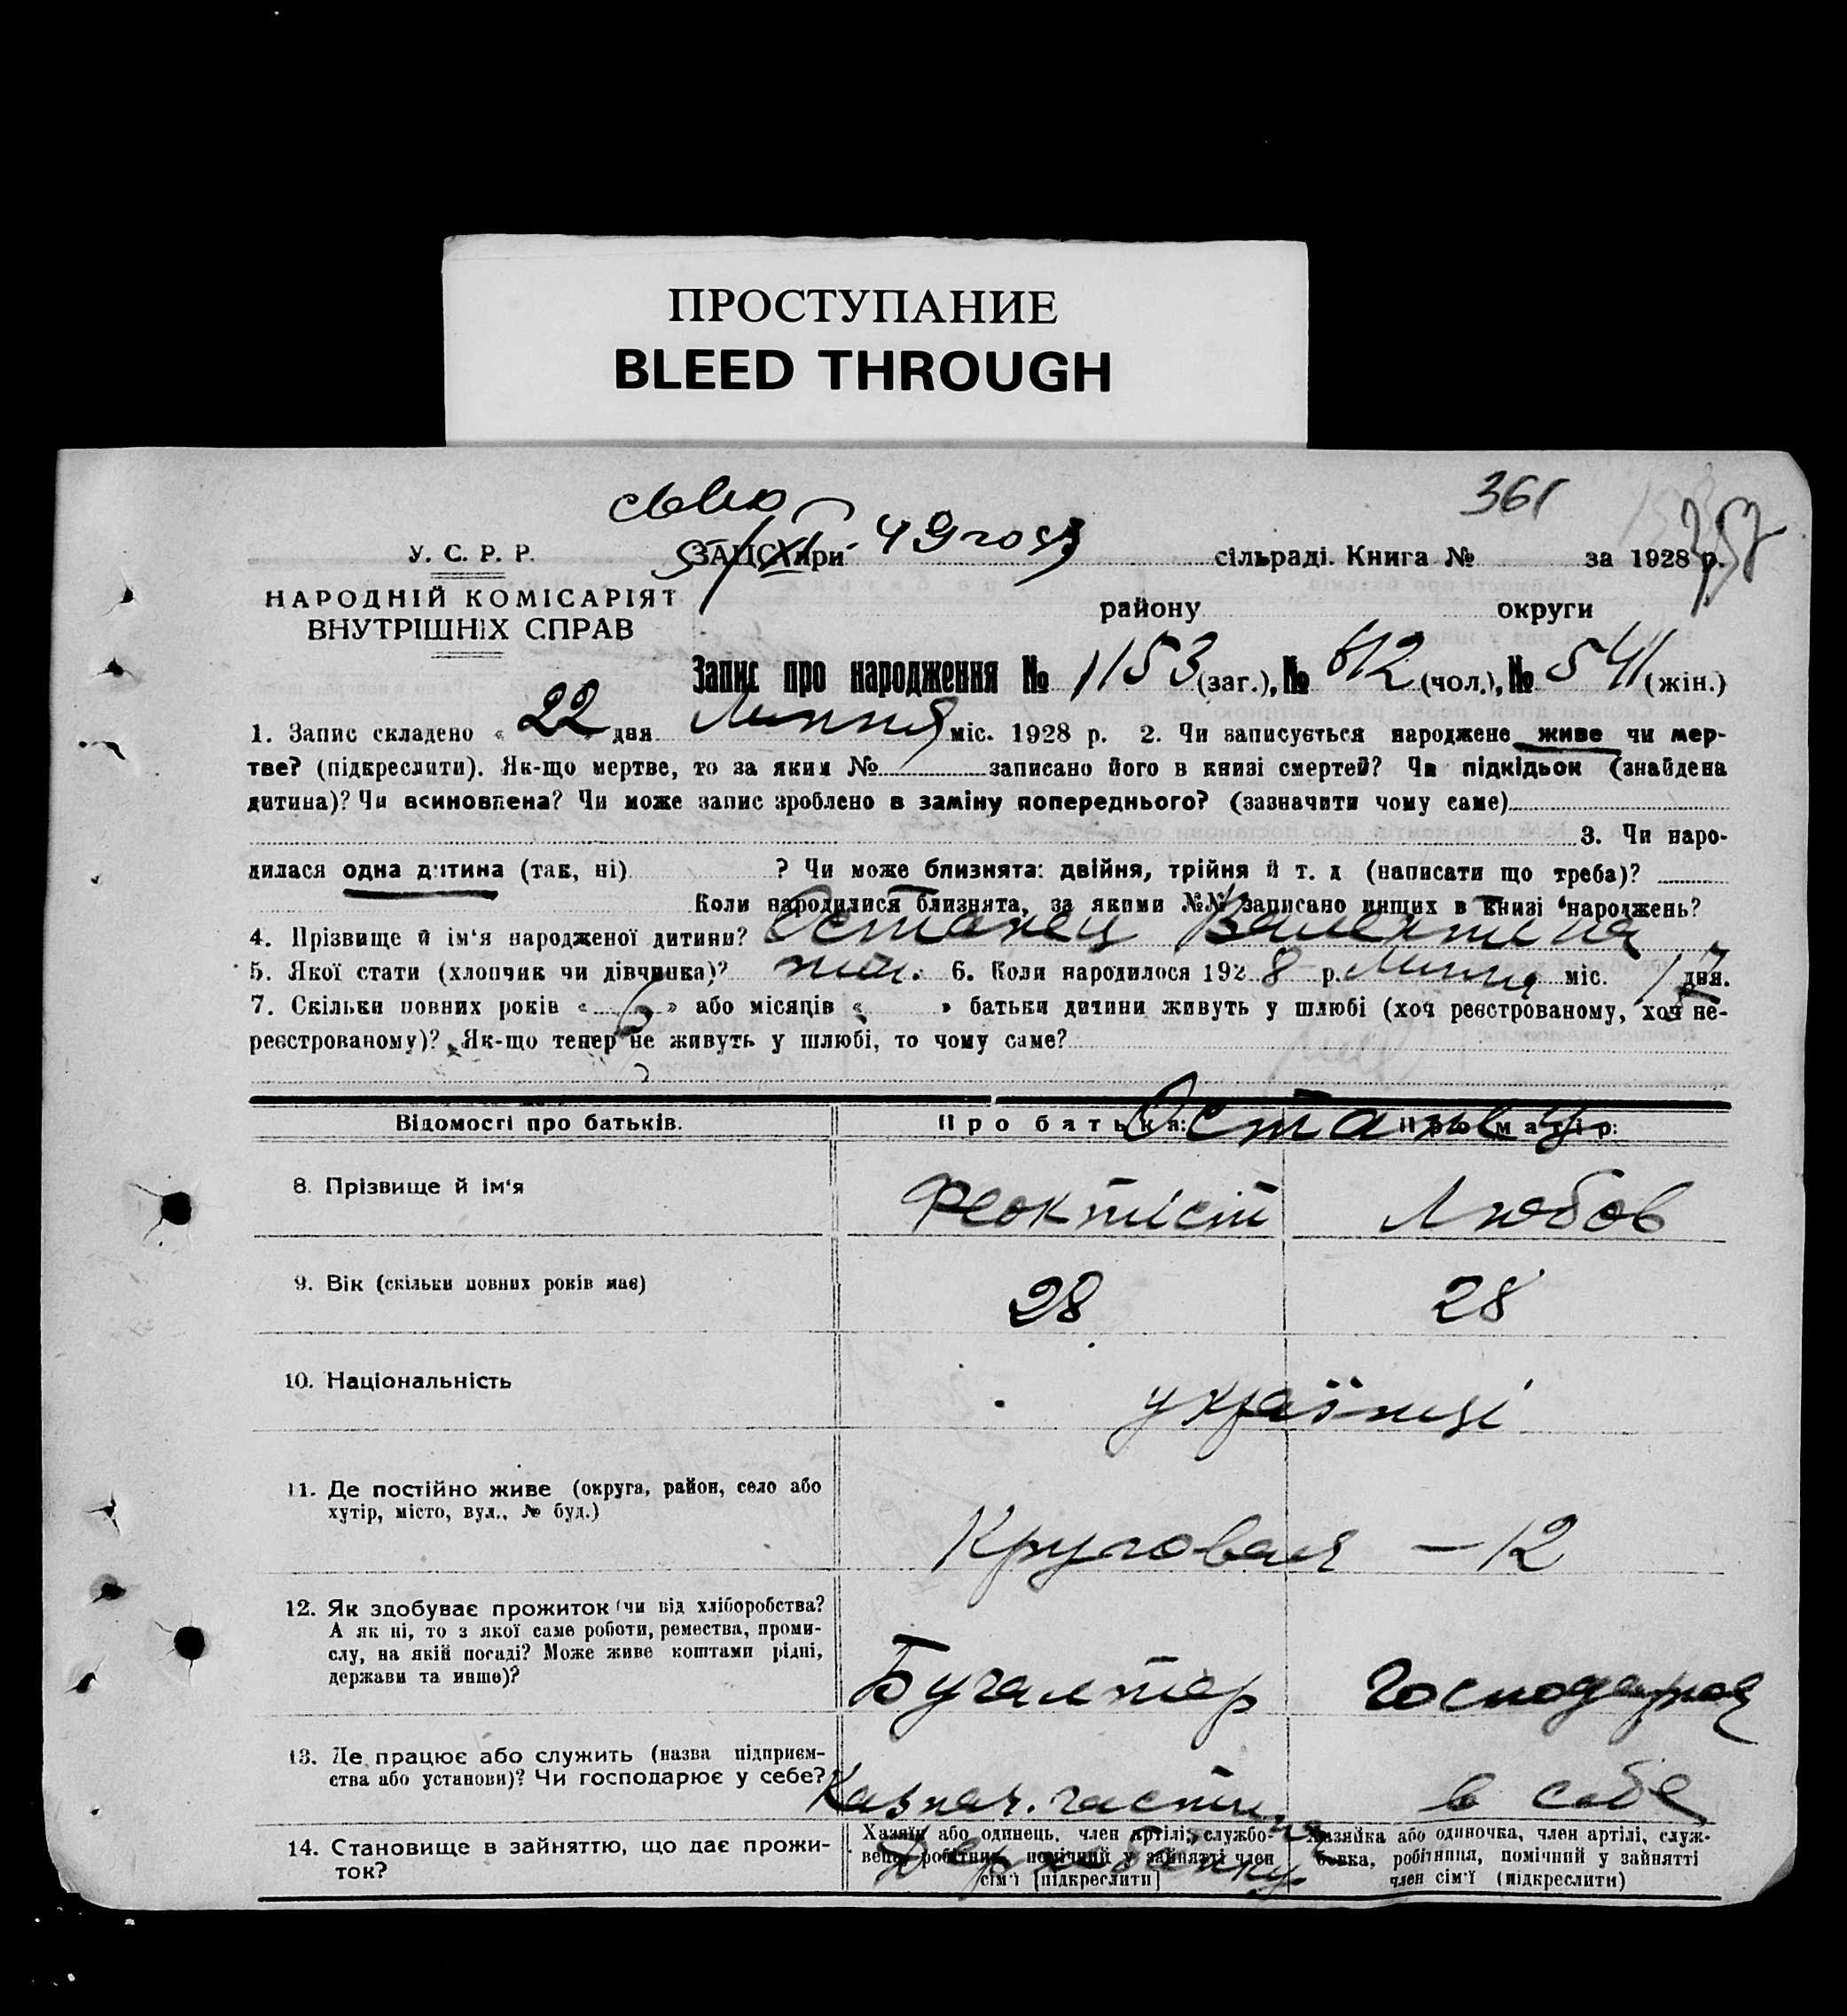 ПРОСТУПАНИЕ
BLEED THROUGH
361
357
У. С. Р. Р.
НАРОДНІЙ КОМІСАРІЯТ
ВНУТРІШНІХ СПРАВ
ЗАЦС при сільраді. Книга № за 1928 р.
району округи
Запис про народження № 1153 (заг.), № 612 (чол.), № 541 (жін.)
1. Запис складено « 22 » дня Липня міс. 1928 р. 2. Чи записується народжене живе чи мер-
тве? (підкреслити). Як-що мертве, то за яким № записано його в книзі смертей? Чи підкідьок (знайдена
дитина)? Чи всиновлена? Чи може запис зроблено в заміну попереднього? (зазначити чому саме)
3. Чи наро-
дилася одна дитина (так, ні) ? Чи може близнята: двійня, трійня й т. д (написати що треба)?
Коли народилися близнята, за якими №№ записано инших в книзі народжень?
4. Прізвище й ім'я народженої дитини? Остапец Валентина
5. Якої стати (хлопчик чи дівчинка)? жін. 6. Коли народилося 1928 р. Липня міс. 17 дня.
7. Скільки повних років « 6 » або місяців « » батьки дитини живуть у шлюбі (хоч реєстрованому, хоч не-
реєстрованому)? Як-що тепер не живуть у шлюбі, то чому саме?
Відомості про батьків. Про батька: Про матір:
Остапец
8. Прізвище й ім'я Феоктіст Любов
9. Вік (скільки повних років має) 28 28
10. Національність українці
11. Де постійно живе (округа, район, село або
хутір, місто, вул., № буд.)
Круговая – 12
12. Як здобуває прожиток (чи від хліборобства?
А як ні, то з якої саме роботи, ремества, проми-
слу, на якій посаді? Може живе коштами рідні,
держави та инше)?
Бугалтер Господарка
13. Де працює або служить (назва підприєм-
ства або установи)? Чи господарює у себе?
Казнач. частина в себе
Держбанку
14. Становище в зайняттю, що дає прожи-
ток?
Хазяїн або одинець, член артілі, службо-
вець, робітник, помічний у зайнятті член
сім'ї [підкреслити]
Хазяйка або одиночка, член артілі, служ-
бовка, робітниця, помічний у зайнятті
член сім'ї (підкреслити)